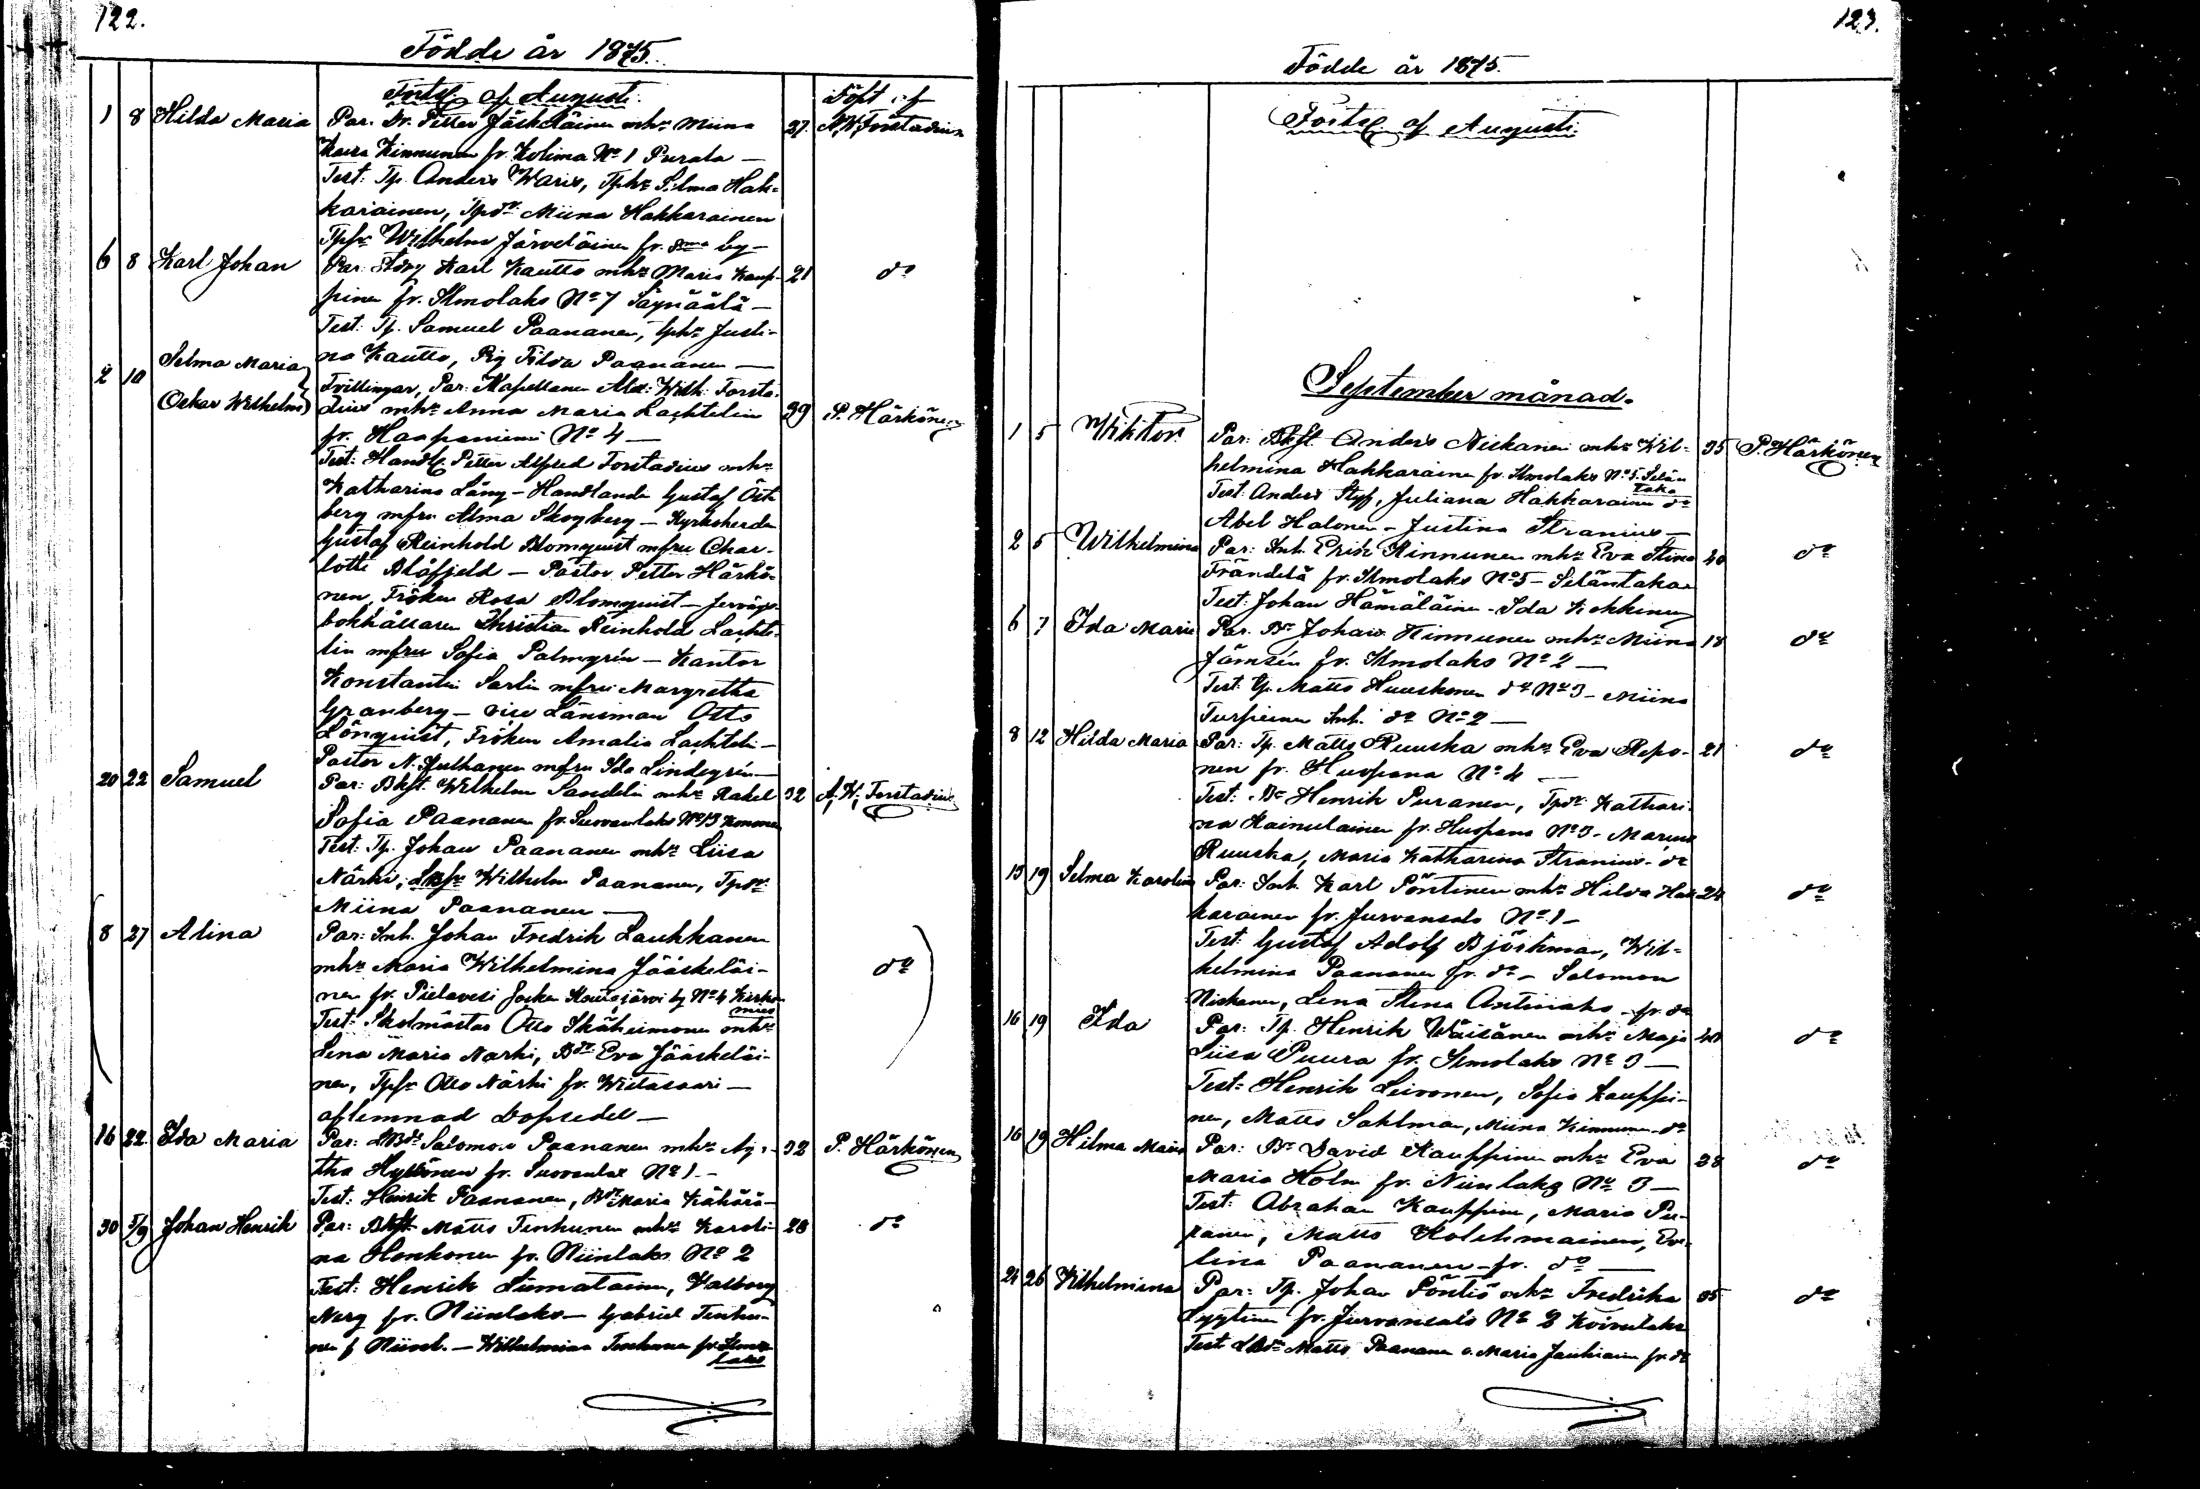 122.
Födde år 1875.
Forts. af Augusti.
Döpt af
1 8 Hilda Maria Par. Dr. Petter Jääskeläinen mhr Miina 27. A. W. Forstadius
Kaisa Kinnunen fr. Kolima No 1 Purala —
Test: Tp. Anders Waris, Tphr Selma Hak-
karainen, Tpdr Miina Hakkarainen
Tpsr Wilhelm Järveläinen fr. sma by —
6 8 Karl Johan Par: Karl Kautto mhr Maria Kaup- 21 do
pinen fr. Ilmolaks No 7 Säynäälä —
Test: Tp. Samuel Paananen, Tphr Justi-
na Kautto, Pig Tilda Paananen —
2 10 Selma Maria
Oskar Wilhelm
Tvillingar, Par: Kapellanen Alex: Wilh: Forsta-
dius mhr Anna Maria Lachtelin 39 P. Härkönen
fr. Haapaniemi No 4 —
Test: Handl. Petter Alfred Forstadius mhr
Katharina Lång — Handlande Gustaf Öst
berg mfru Alma Skogberg — Kyrkoherden
Gustaf Reinhold Blomquist mfru Char-
lotte Blåfjeld — Pastor Petter Härkö-
nen, Fröken Rosa Blomquist —
bokhållaren Christian Reinhold Lacht-
lin mfru Sofia Palmgrén — Kantor
Konstantin Sarlin mfru Margretha
Granberg — vice Länsman Otto
Lönquist, Fröken Amalia Lachteli —
Pastor N. mfru Ida Lindegrén —
20 22 Samuel Par: Bkft. Wilhelm Sandelin mhr Rakel 32 A. W. Forstadius
Sofia Paananen fr. Suovanlaks No 13
Test: Tp. Johan Paananen mhr Liisa
Närhi, Wilhelm Paananen, Tpdr
Miina Paananen —
8 27 Alina Par: Inh. Johan Fredrik Laukkanen
mhr Maria Wilhelmina Jääskeläi- do
nen fr. Pielavesi Socken by No 4
Test: Skolmästar Otto Ikäheimonen mhr
Lena Maria Närhi, Bdr Eva Jääskeläi-
nen, Tpsr Otto Närhi fr. Wiitasaari —
aflemnad Dopsedel —
16 22. Ida Maria Par: LBdr Salomon Paananen mhr Ag- 32 P. Härkönen
tha Hytönen fr. Suovanlax No 1. —
Test: Henrik Paananen, Bdr Maria Kähärä —
30 5/9 Johan Henrik Par: Bkft Matts Tenhunen mhr Karoli- 28 do
na Honkonen fr. Niinlaks No 2
Test: Henrik Liimatainen, Walborg
Nerg fr. Niinlaks — Gabriel Tenhu-
nen f Niinl. — Wilhelmina Tenhunen fr. Ilmo-
laks
123.
Födde år 1875.
Forts. af Augusti.
September månad.
1 5 Wiktor Par: Bkft Anders Niskanen mhr Wil- 35 P. Härkönen
helmina Hakkarainen fr. Ilmolaks No 5. Selän
taka
Test: Anders Styf, Juliana Hakkarainen do
Abel Halonen — Justina Stranius —
2 5 Wilhelmina Par: Inh. Erik Kinnunen mhr Eva Stina 40 do
Frändelä fr. Ilmolaks No 5 — Seläntaka
Test: Johan Hämäläinen — Ida Kokkinen
6 7 Ida Maria Par. Br Johan Kinnunen mhr Miina 18 do
Jämsén fr. Ilmolaks No 2 —
Test: Tp. Matts Huuskonen do No 3 — Miina
Turpeinen Inh. do No 2 —
8 12 Hilda Maria Par: Tp. Matts Ruuska mhr Eva Repo- 21 do
nen fr. Huopana No 4 —
Test: Br Henrik Puranen, Tpdr Kathari-
na Kainulainen fr. Huopana No 3 — Marcus
Ruuska, Maria Katharina Stranius — do
15 19 Selma Karolin Par: Inh. Karl Pöntinen mhr Hilda Hak 24 do
karainen fr. Jurvansalo No 1 —
Test: Gustaf Adolf Björkman, Wil-
helmina Paananen fr. do — Salomon
Niskanen, Lena Stina — fr. do
16 19 Ida Par: Tp. Henrik Wäisänen mhr Maja 40 do
Liisa Puura fr. Ilmolaks No 3 —
Test: Henrik Leivonen, Sofia Kauppi-
nen, Matts Sahlman, Miina Kinnunen do
16 19 Hilma Maria Par: Br David Kauppinen mhr Eva 28 do
Maria Holm fr. Niinlaks No 3 —
Test: Abraham Kauppinen, Maria Pu-
ranen, Matts Kolehmainen, Eve-
lina Paananen fr. do —
24 26 Wilhelmina Par: Tp. Johan Pöntiö mhr Fredrika 35 do
Lyytinen fr. Jurvansalo No 2 Koivulaks
Test LBdr Matts Paananen o. Maria Jauhiainen fr. do